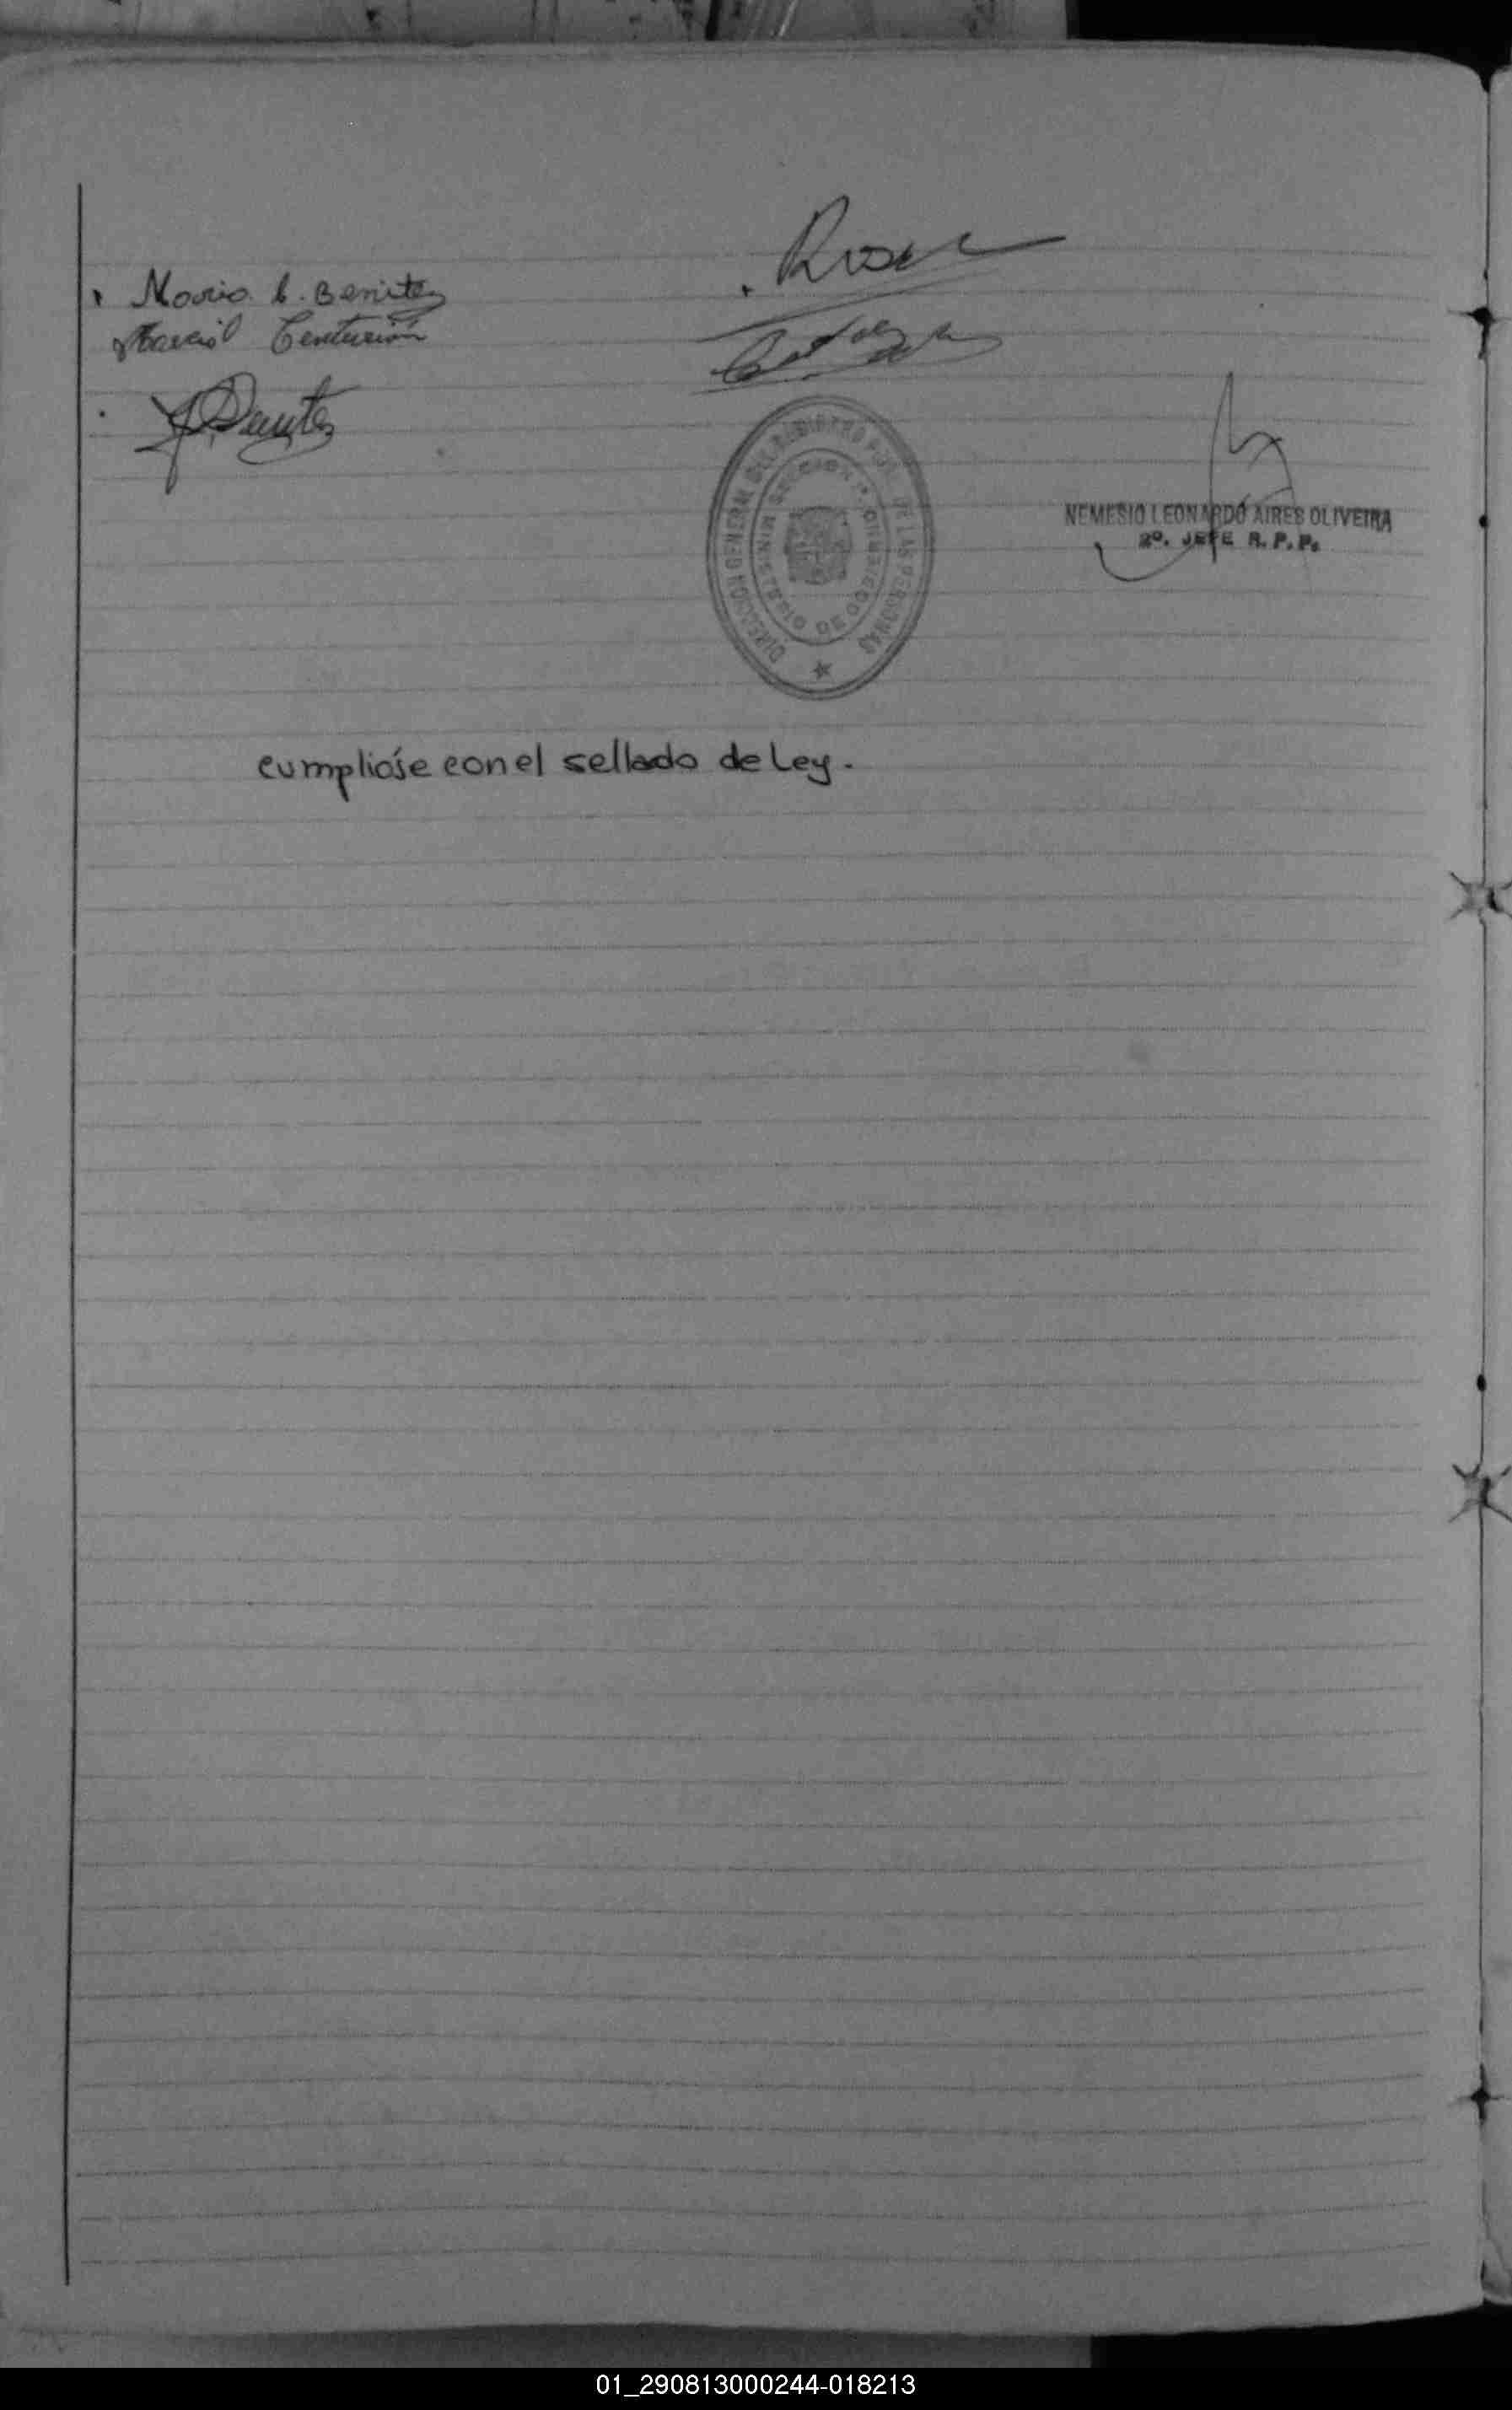 Mario C. Benitez
Marcial Centurión
Benitez
DIRECCION GENERAL DEL REGISTRO DE LAS PERSONAS
MINISTERIO DE
NEMESIO LEONARDO AIRES OLIVEIRA
2º. JEFE R. P. P.
cumplióse con el sellado de Ley.
01_290813000244-018213